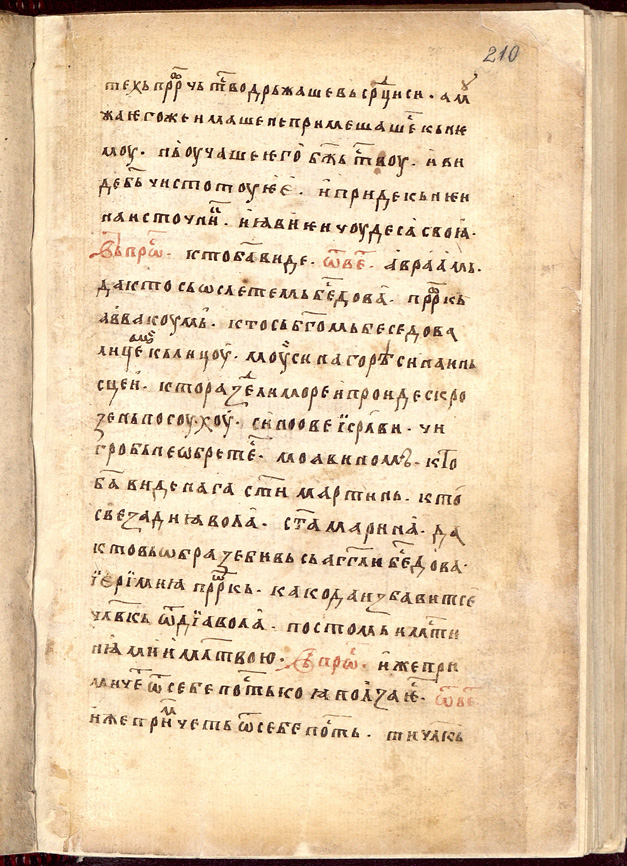 210
техь прⷪ҇рчь тⷭ҇во дрьжаше вь срⷣци си · а мꙋ
жа ѥгоже имаше не примешашеⷭ҇ кь нѥ
моу · нь оучаше ѥго бж҃ьтⷭ҇воу · и ви
де бь҃ чистотоу ѥѥ · и приде кь нѥи
на источниⷦ҇ · и ꙗви ѥи чоудеса своꙗ ·
Вьпроⷭ҇ · кто ба҃ виде · ѿвеⷮ · авраамь ·
да кто сь ѡслетемь беⷭ҇дова · прⷪ҇ркь
аввакоумь · кто сь бг҃омь беседова
лице кь лицоу · моѵси на горѣ синаинь
сцеи · кто раздели море и проиде скро
зе нь по соухоу · синове їсраⷧ҇ви · чи
гробь не ѡбретеⷭ҇ · моѵви помь · кто
ба҃ виде нага ст҃и мартинь · кто
свеза диꙗвола · ст҃а марина · да
кто вь ѡбразе бивь сь агг҃ли беⷭ҇дова ·
їеріміꙗ прⷪ҇ркь · како да избавит се
чл҃вкь ѿ дїавола · постомь и млⷭ҇ти
нꙗми и млт҃вою · Вьпроⷭ҇ · иже при
мичеⷮ ѿ себе поⷭ҇ть кою ползаѥⷭ҇ · ѿвеⷮ
иже примчеть ѿ себе поⷭ҇ть · ти чл҃вкь